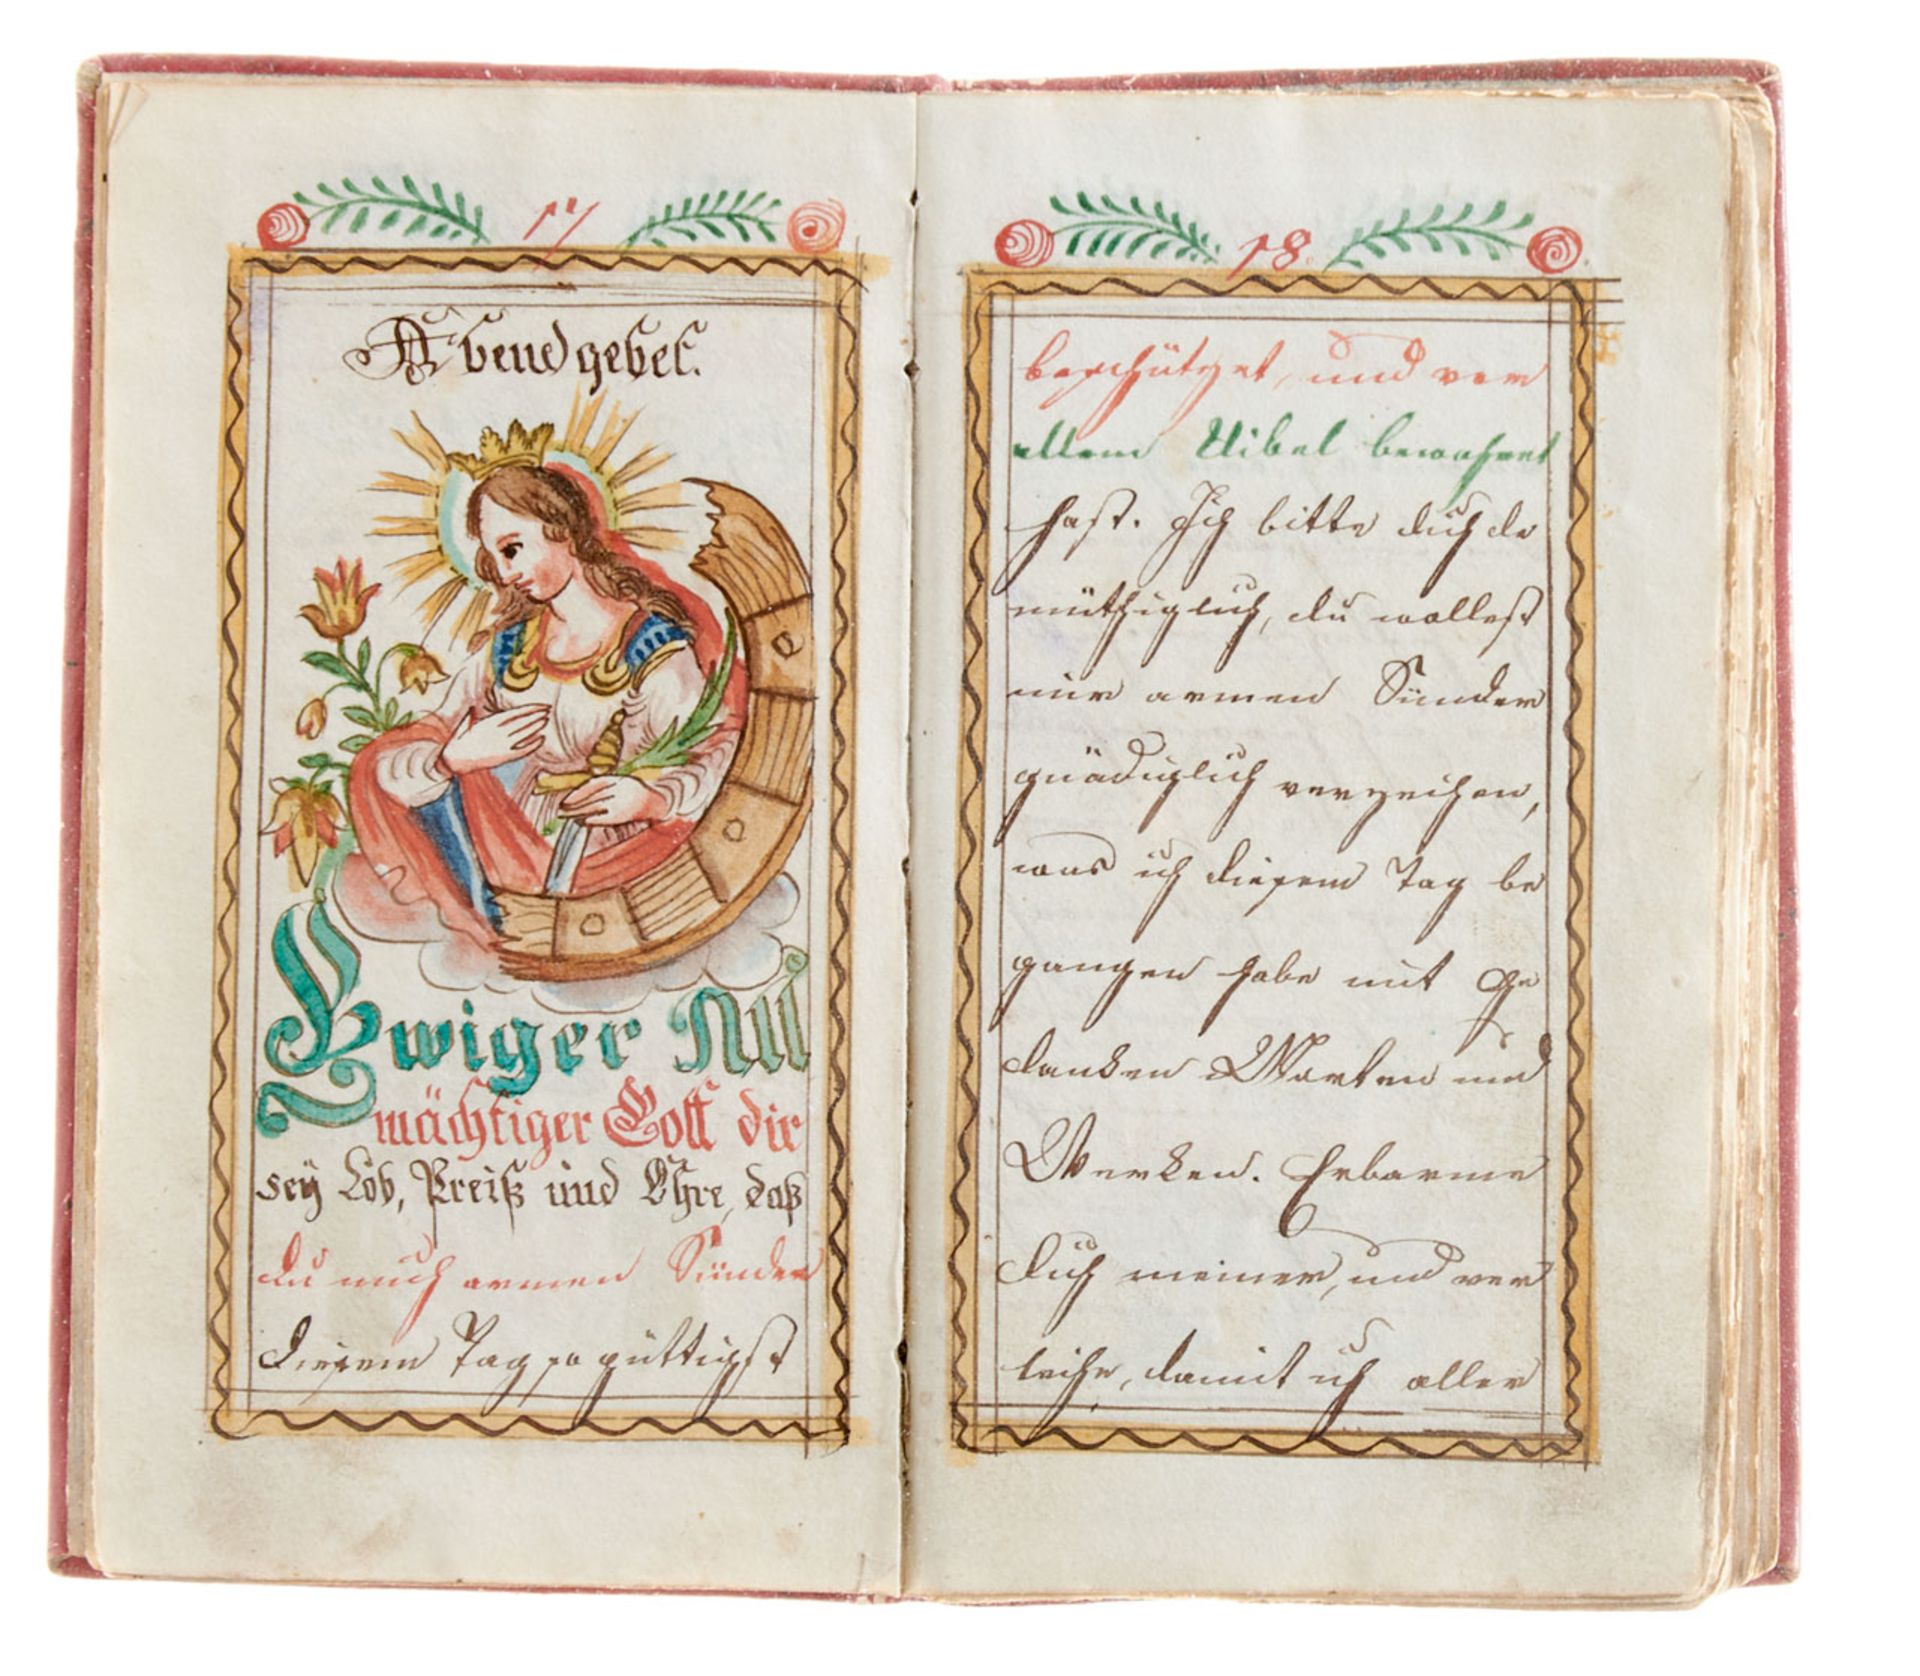 17
Abendgebet.
Ewiger All
mächtiger Gott dir
sey Lob, Preiß und Ehre, daß
du mich armen Sünder
diesem Tag so güttigst
18.
beschützet, und ver
allem Uibel bewahret
hast. Ich bitte dich de
müthiglich, du wollest
mir armen Sünder
gnädiglich verzeihen,
was ich diesem Tag be
gangen habe mit Ge
danken Worten und
Werken. Erbarme
dich meiner, und ver
leihe, damit ich aller